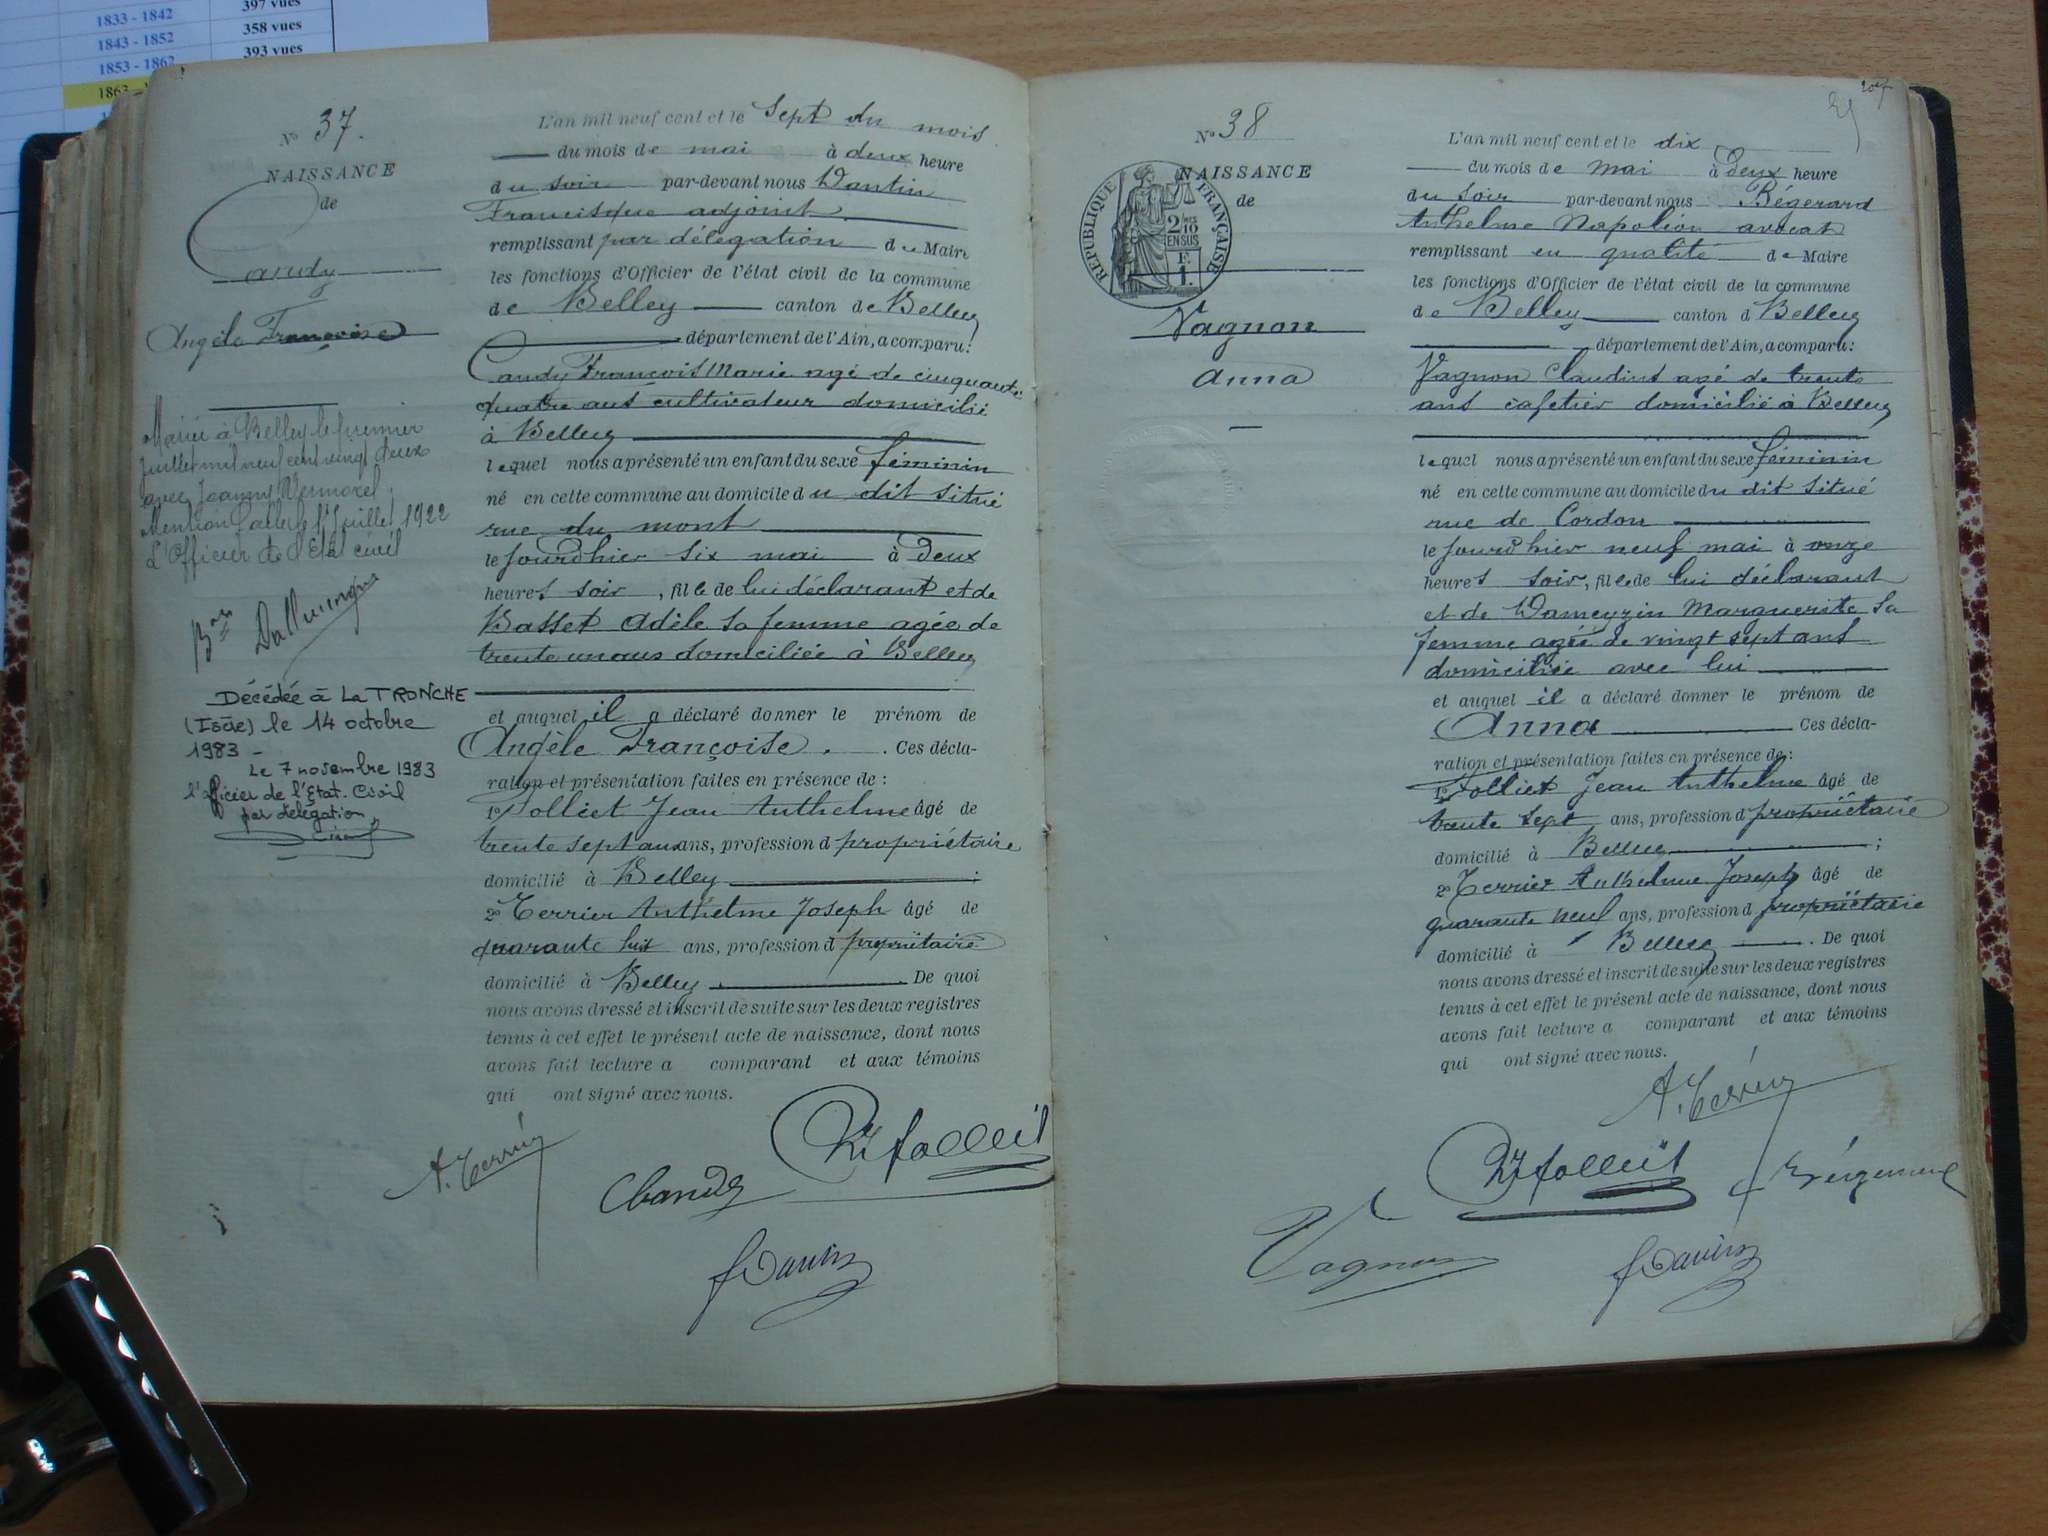 397 vues
1833 - 1842
358 vues
1843 - 1852
393 vues
1853 - 1862
1863 -
N° 37.
NAISSANCE
de
Candy
Angèle Françoise
Mariée à Belley le premier
Juillet mil neuf cent vingt deux
avec Joanny Vermorel.
Mention Belley le 1er Juillet 1922
L'Officier de l'Etat civil
Décédée à LA TRONCHE
(Isère) le 14 octobre
1983 -
Le 7 novembre 1983
l'officier de l'Etat. Civil
par délégation,
L'an mil neuf cent et le Sept du mois
du mois de mai à deux heure
du soir par-devant nous Dantin
Francisque adjoint
remplissant par délégation du Maire
les fonctions d'Officier de l'état civil de la commune
de Belley canton de Belley
département de l'Ain, a comparu:
Candy François Marie agé de cinquante
quatre ans cultivateur domicilié
à Belley
lequel nous a présenté un enfant du sexe féminin
né en cette commune au domicile du dit situé
rue du mont
le jourd'hier six mai à deux
heures soir, fille de lui déclarant et de
Basset Adèle sa femme agée de
trente un ans domiciliée à Belley
et auquel il a déclaré donner le prénom de
Angèle Françoise. Ces décla-
ration et présentation faites en présence de :
1° Folliet Jean Anthelme âgé de
trente sept ans ans, profession d propriétaire
domicilié à Belley ;
2° Terrier Anthelme Joseph âgé de
quarante huit ans, profession d propriétaire
domicilié à Belley. De quoi
nous avons dressé et inscrit de suite sur les deux registres
tenus à cet effet le présent acte de naissance, dont nous
avons fait lecture a comparant et aux témoins
qui ont signé avec nous.
A. Terrier
Folliet
Candy
207
N° 38
NAISSANCE
de
RÉPUBLIQUE FRANÇAISE
2/10 EN SUS
F. 1.
Vagnon
Anna
L'an mil neuf cent et le dix
du mois de mai à deux heure
du soir par-devant nous Bégerard
Anthelme Napoléon avocat
remplissant en qualité de Maire
les fonctions d'Officier de l'état civil de la commune
de Belley canton d Belley
département de l'Ain, a comparu:
Vagnon Claudius agé de trente
ans cafetier domicilié à Belley
lequel nous a présenté un enfant du sexe féminin
né en cette commune au domicile du dit situé
rue de Cordon
le jourd'hier neuf mai à onze
heures soir, fille de lui déclarant
et de Dameyzin Marguerite sa
femme agée de vingt sept ans
domiciliée avec lui
et auquel il a déclaré donner le prénom de
Anna Ces décla-
ration et présentation faites en présence de :
1° Folliet Jean Anthelme âgé de
trente sept ans, profession d propriétaire
domicilié à Belley ;
2° Terrier Anthelme Joseph âgé de
quarante neuf ans, profession d propriétaire
domicilié à Belley. De quoi
nous avons dressé et inscrit de suite sur les deux registres
tenus à cet effet le présent acte de naissance, dont nous
avons fait lecture a comparant et aux témoins
qui ont signé avec nous.
A. Terrier
Folliet
Vagnon